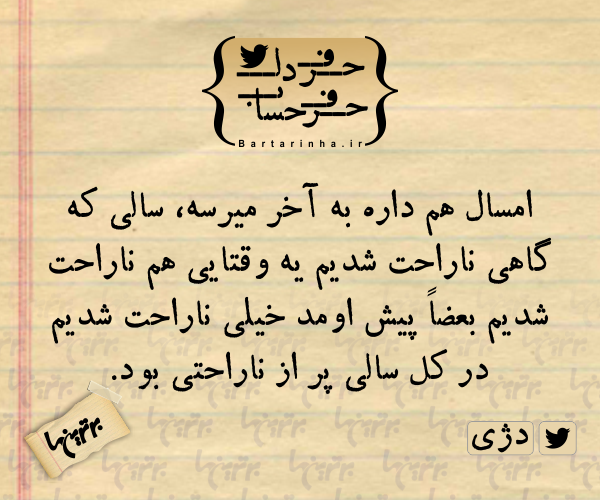 حرف دل
حرف حساب
Bartarinha.ir
امسال هم داره به آخر میرسه، سالی که
گاهی ناراحت شدیم یه وقتایی هم ناراحت
شدیم بعضاً پیش اومد خیلی ناراحت شدیم
در کل سالی پر از ناراحتی بود.
برترین‌ها
دژی